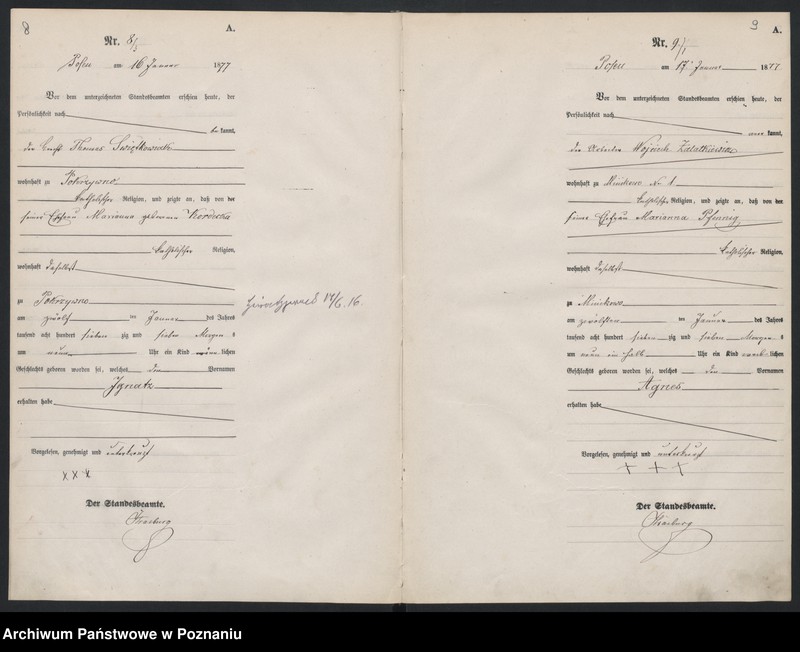 8
A.
Nr. 8/3
Posen am 16 Januar 1877
Vor dem unterzeichneten Standesbeamten erschien heute, der
Persönlichkeit nach
be kannt,
der Thomas
wohnhaft zu Pokrzywno
katholischer Religion, und zeigte an, daß von der
seiner Ehefrau Marianna geborenen
katholischer Religion,
wohnhaft daselbst
zu Pokrzywno
am zwölf ten Januar des Jahres
tausend acht hundert sieben zig und sieben Morgen s
um neun Uhr ein Kind männ lichen
Geschlechts geboren worden sei, welches den Vornamen
Ignatz
erhalten habe
Vorgelesen, genehmigt und unterkreuzt
x x x
Der Standesbeamte.
17/6.16.
9
A.
Nr. 9/1
Posen am 17 Januar 1877
Vor dem unterzeichneten Standesbeamten erschien heute, der
Persönlichkeit nach
kannt,
der Arbeiter Wojciech
wohnhaft zu Minikowo No 1
katholischer Religion, und zeigte an, daß von der
seiner Ehefrau Marianna Pfennig
katholischer Religion,
wohnhaft daselbst
zu Minikowo
am zwölften ten Januar des Jahres
tausend acht hundert sieben zig und sieben Morgen s
um neun ein halb Uhr ein Kind weib lichen
Geschlechts geboren worden sei, welches den Vornamen
Agnes
erhalten habe
Vorgelesen, genehmigt und unterkreuzt
+ + +
Der Standesbeamte.
Archiwum Państwowe w Poznaniu